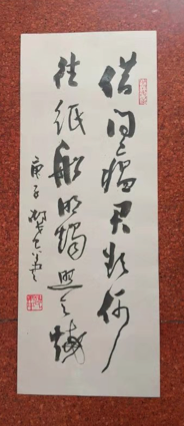 借问瘟君欲何
往纸船明烛照天烧
庚子